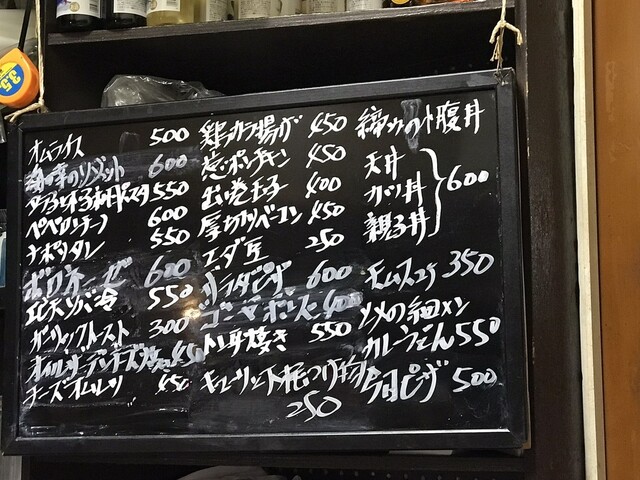 オムライス 500
海の幸のリゾット 600
タラコと木の子和風パスタ 550
ペペロンチーノ 600
ナポリタン 550
ボロネーゼ 600
エビ天ソバ 550
ガーリックトースト 300
オイルサーディンチーズ焼 450
チーズオムレツ 450
鶏カラ揚げ 450
チキン 450
出し巻玉子 400
厚切りベーコン 450
エダ豆 250
サラダピザ 600
400
焼き 550
キューリの一本漬け物
250
〆の小腹丼
天丼
カツ丼
親子丼
600
オムスコ 350
〆の細メン
カレーうどん 550
今日ピザ 500
3.5